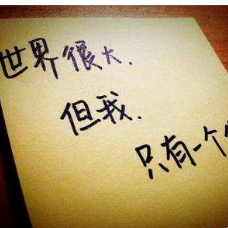 世界很大.
但我.
只有一个